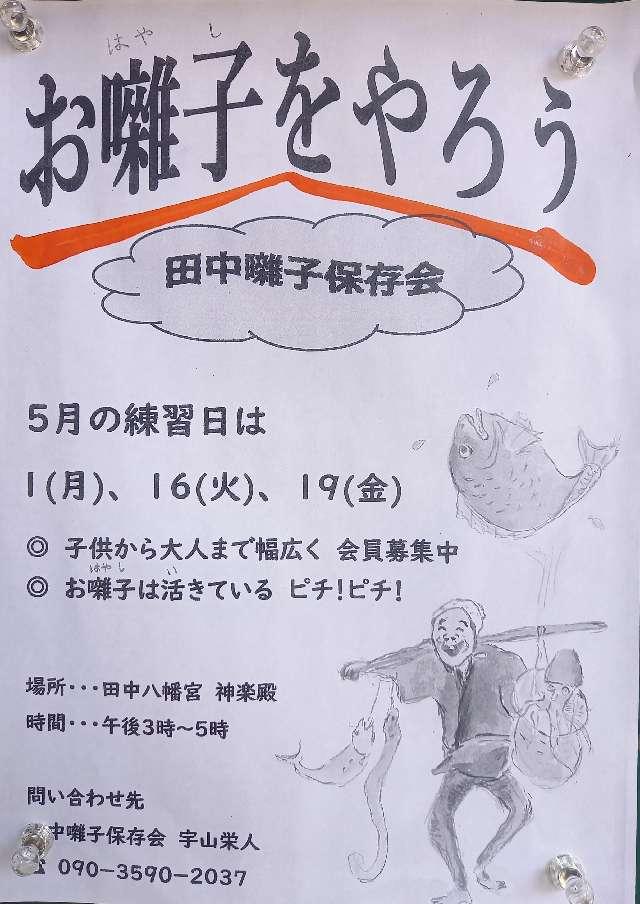 はやし
お囃子をやろう
田中囃子保存会
5月の練習日は
1(月)、16(火)、19(金)
◎ 子供から大人まで幅広く 会員募集中
はやし い
◎ お囃子は活きている ピチ!ピチ!
場所・・・田中八幡宮 神楽殿
時間・・・午後3時～5時
問い合わせ先
中囃子保存会 宇山栄人
☎ 090-3590-2037